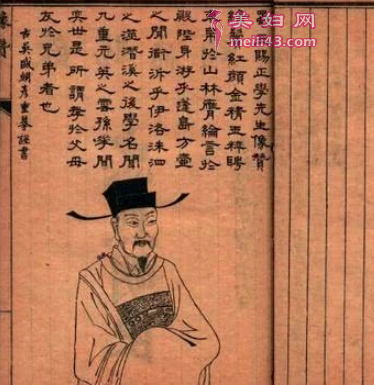 三賜正學先生像贊
紅顏金精玉粹聘
於山林膺綸言於
殿陛身游乎蓬島方壺
之間泝乎伊洛洙泗
之派潛溪之後學名聞
九重元英之雲孫學聞
奕世是所謂孝於父母
友於兄弟者也
古吳戚綱彥重摹謹書
像贊
美妇网